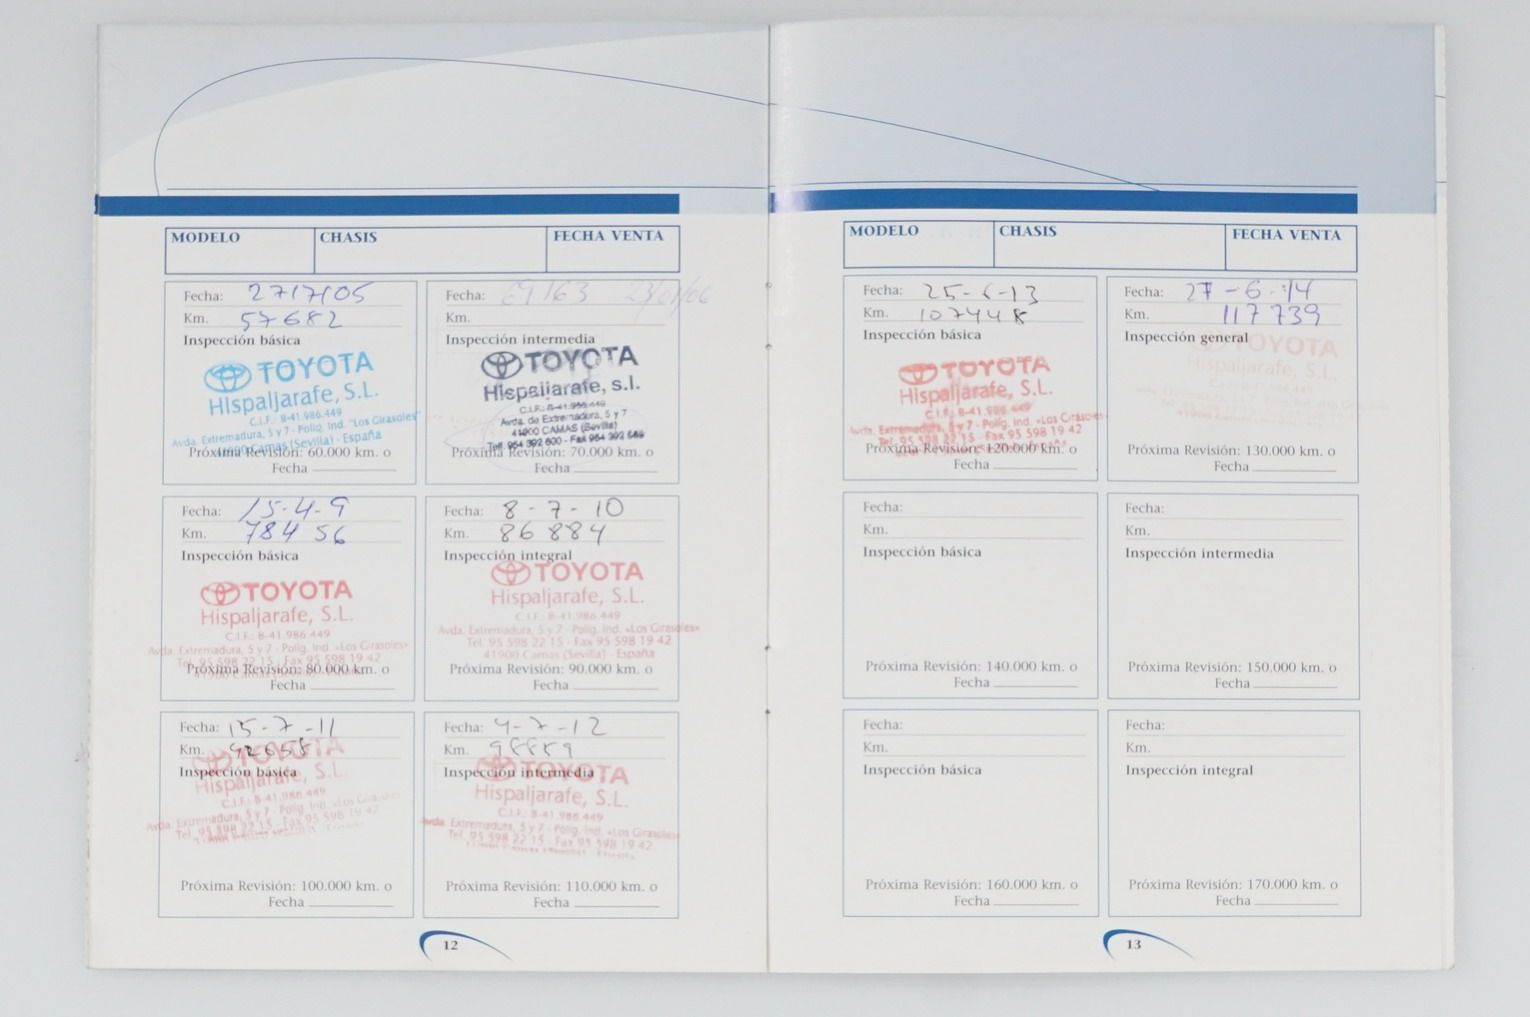 MODELO CHASIS FECHA VENTA
Fecha: 27/7/05
Km. 57682
Inspección básica
TOYOTA
Hispaljarafe, S.L.
C.I.F.: B-41.986.449
Avda. Extremadura, 5 y 7 - Polig. Ind. "Los Girasoles"
41900 Camas (Sevilla) - España
Próxima Revisión: 60.000 km. o
Fecha
Fecha: 69163 23/01/06
Km.
Inspección intermedia
TOYOTA
Hispaljarafe, s.l.
C.I.F.: B-41.986.449
Avda. de Extremadura, 5 y 7
41900 CAMAS (Sevilla)
Telf. 954 392 600 - Fax 954
Próxima Revisión: 70.000 km. o
Fecha
Fecha: 15-4-9
Km. 78456
Inspección básica
TOYOTA
Hispaljarafe, S.L.
C.I.F.: B-41.986.449
Avda. Extremadura, 5 y 7 - Polig. Ind. «Los Girasoles»
Tel. 95 598 22 15 - Fax 95 598 19 42
41900 Camas
Próxima Revisión: 80.000 km. o
Fecha
Fecha: 8-7-10
Km. 86884
Inspección integral
TOYOTA
Hispaljarafe, S.L.
C.I.F.: B-41.986.449
Avda. Extremadura, 5 y 7 - Polig. Ind. «Los Girasoles»
Tel. 95 598 22 15 - Fax 95 598 19 42
41900 Camas (Sevilla) - España
Próxima Revisión: 90.000 km. o
Fecha
Fecha: 15-7-11
Km. 92658
Inspección básica
TOYOTA
Hispaljarafe, S.L.
C.I.F.: B-41.986.449
Avda. Extremadura, 5 y 7 - Polig. Ind. «Los Girasoles»
Tel. 95 598 22 15 - Fax 95 598 19 42
Próxima Revisión: 100.000 km. o
Fecha
Fecha: 4-7-12
Km. 98889
Inspección intermedia
TOYOTA
Hispaljarafe, S.L.
C.I.F.: B-41.986.449
Avda. Extremadura, 5 y 7 - Polig. Ind. «Los Girasoles»
Tel. 95 598 22 15 - Fax 95 598 19 42
Próxima Revisión: 110.000 km. o
Fecha
12
MODELO CHASIS FECHA VENTA
Fecha: 25-6-13
Km. 107448
Inspección básica
TOYOTA
Hispaljarafe, S.L.
C.I.F.: B-41.986.449
Avda. Extremadura, 5 y 7 - Polig. Ind. «Los Girasoles»
Tel. 95 598 22 15 - Fax 95 598 19 42
Próxima Revisión: 120.000 km. o
Fecha
Fecha: 27-6-14
Km. 117739
Inspección general
TOYOTA
Hispaljarafe, S.L.
Próxima Revisión: 130.000 km. o
Fecha
Fecha:
Km.
Inspección básica
Próxima Revisión: 140.000 km. o
Fecha
Fecha:
Km.
Inspección intermedia
Próxima Revisión: 150.000 km. o
Fecha
Fecha:
Km.
Inspección básica
Próxima Revisión: 160.000 km. o
Fecha
Fecha:
Km.
Inspección integral
Próxima Revisión: 170.000 km. o
Fecha
13